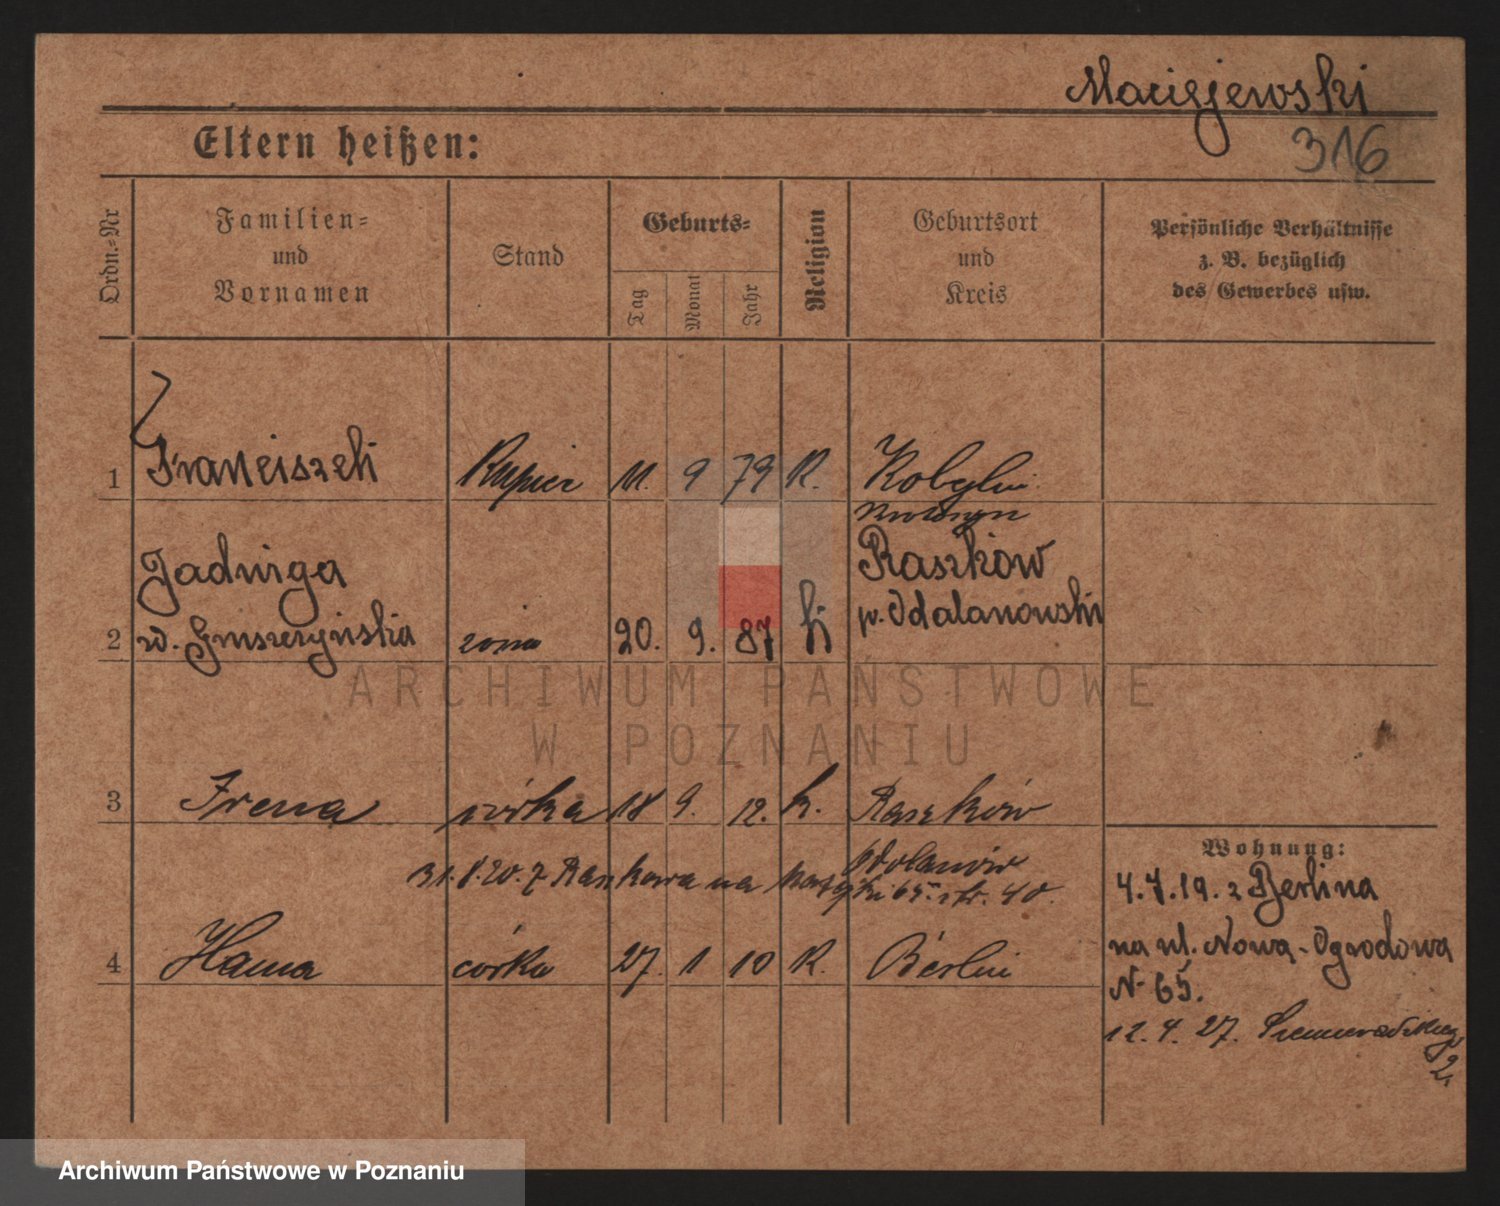 Maciejewski
316
Eltern heißen:
Ordn.-Nr
Familien-
und
Vornamen
Stand
Geburts-
Tag
Monat
Jahr
Religion
Geburtsort
und
Kreis
Persönliche Verhältnisse
z. B. bezüglich
des Gewerbes usw.
1 Franciszek Kupiec 11. 9 79 K. Kobylin
Krotoszyn
Jadwiga Raszków
2 żona 20. 9. 87 k p. Odalanowski
ARCHIWUM PAŃSTWOWE
W POZNANIU
3 Irena córka 18 9. 12. k. Raszków
Odolanów
Wohnung:
31.8.20. z Raszkowa na 65 str. 40.
4.7.19. z Berlina
4 Hanna córka 27. 1 10 K. Berlin
na ul. Nowa-Ogrodowa
N 65.
12.4.27. 2.
Archiwum Państwowe w Poznaniu